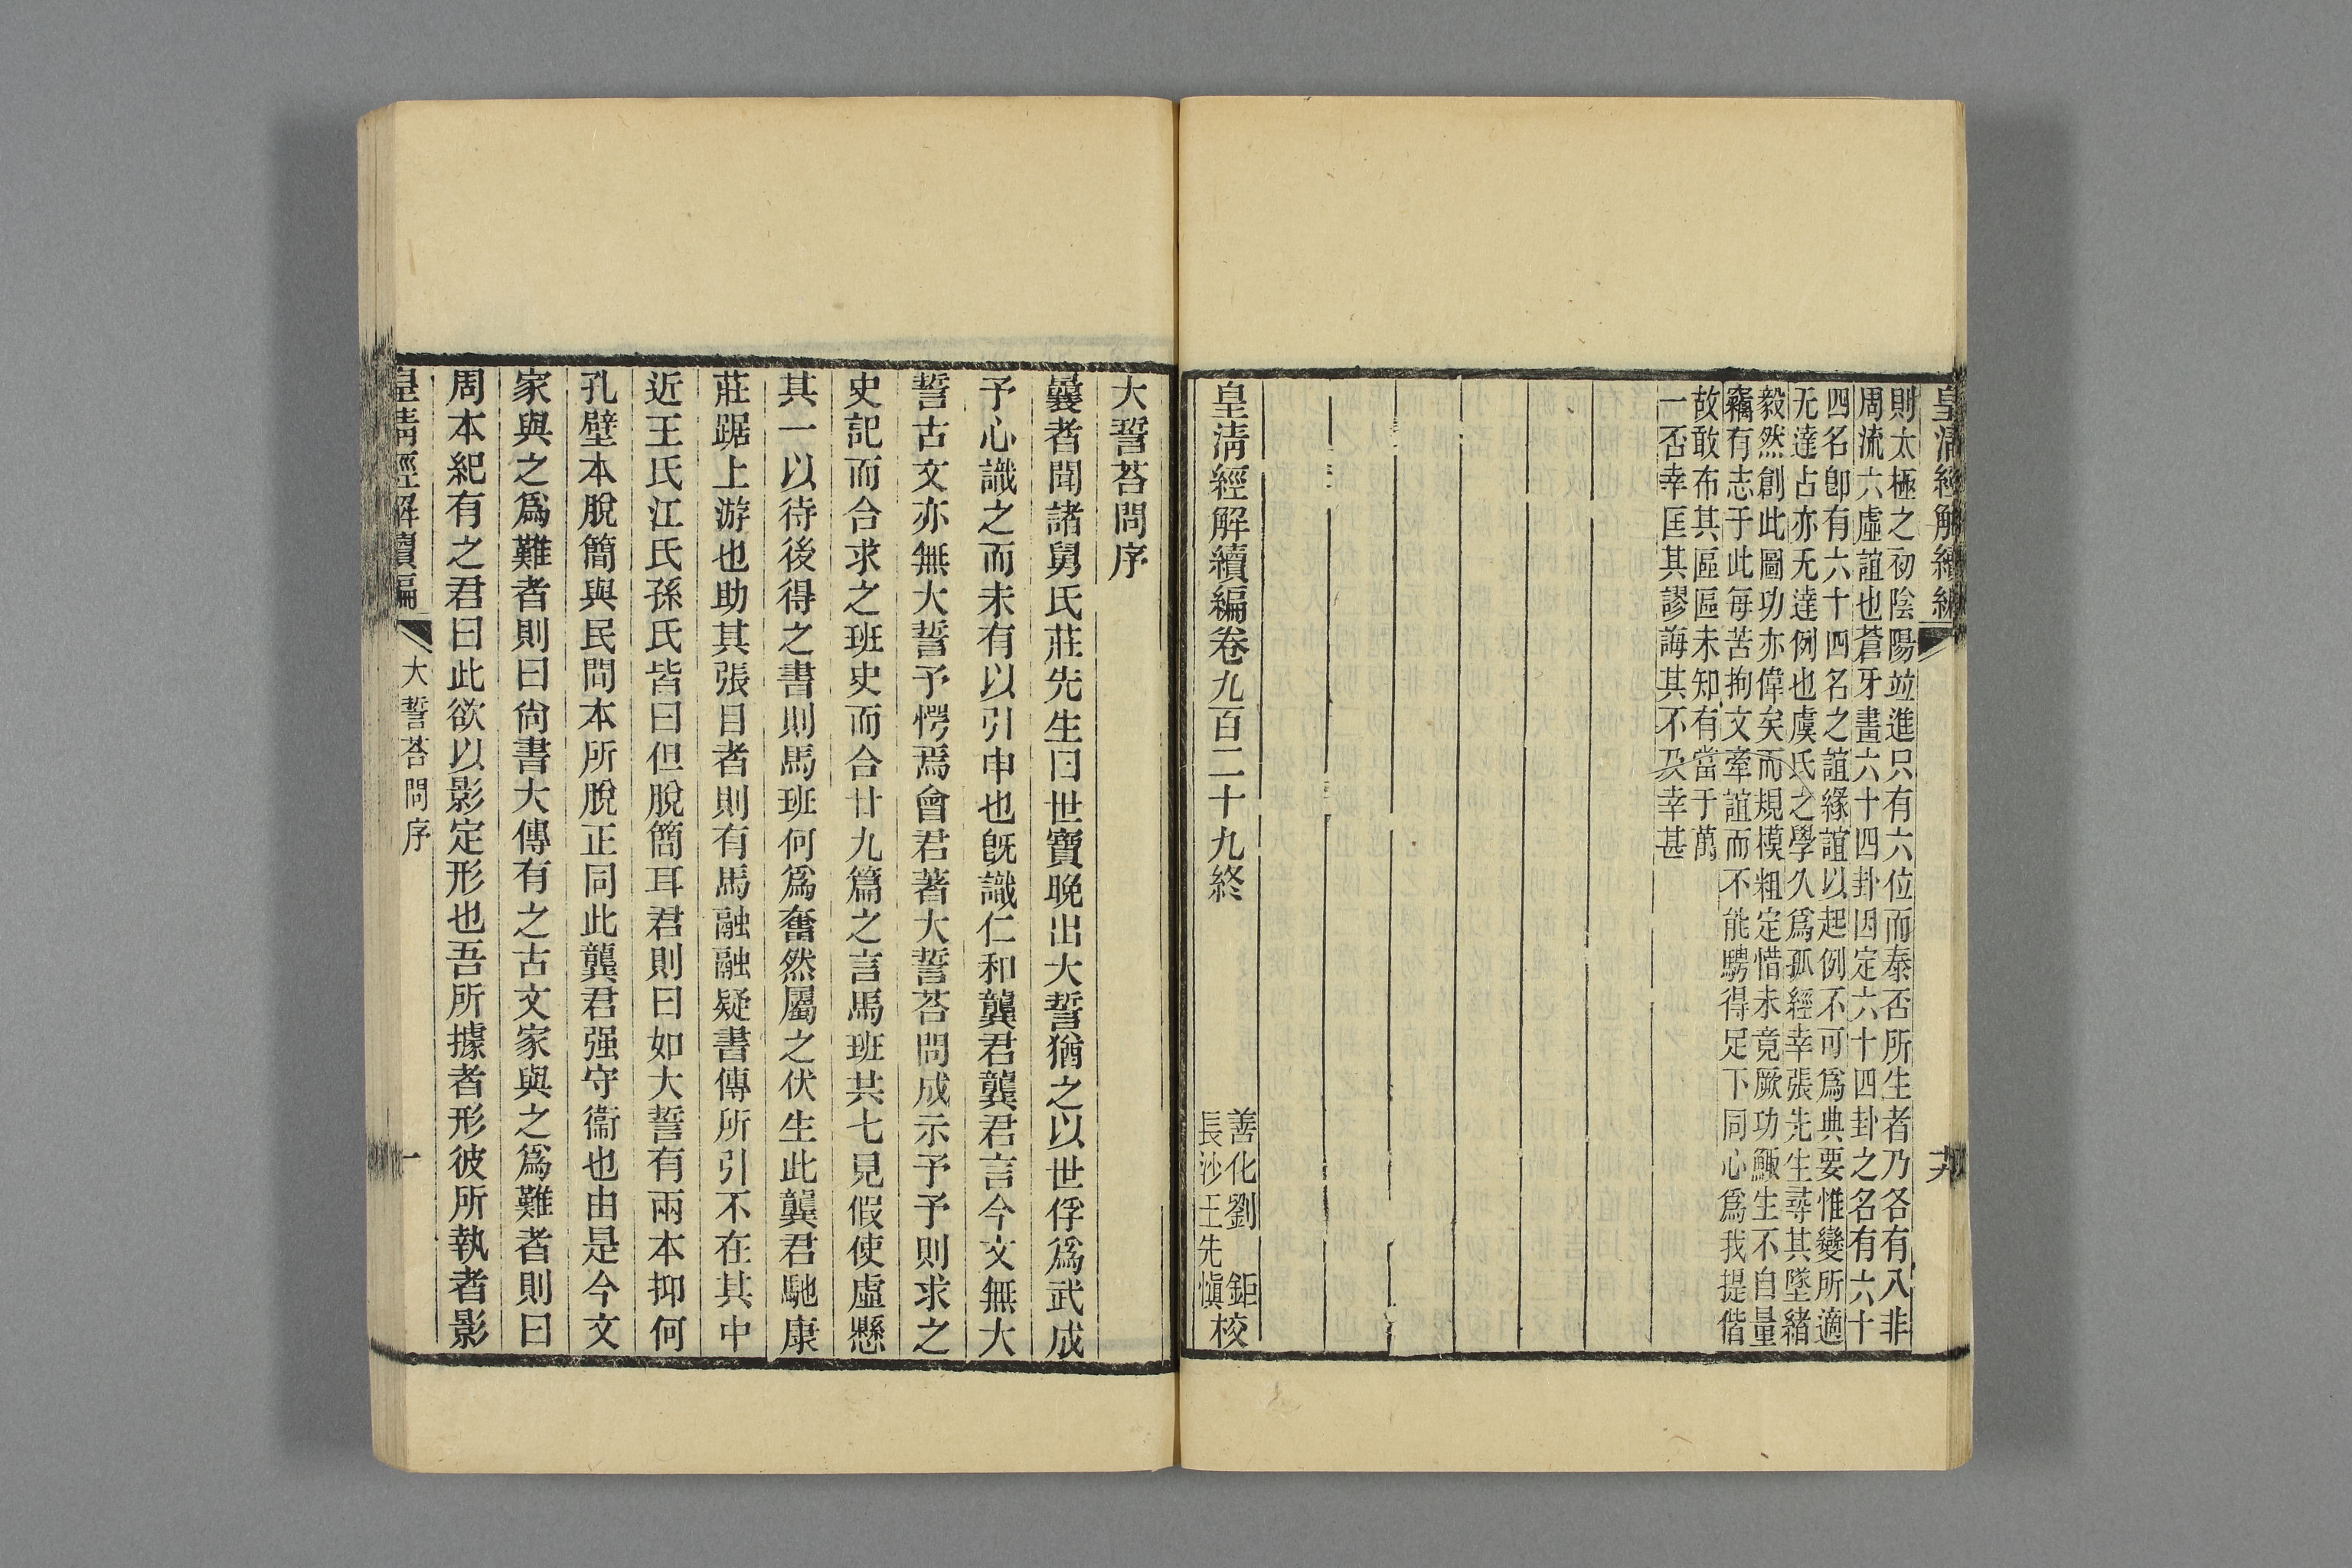 皇清經解續編
六
則太極之初陰陽竝進只有六位而泰否所生者乃各有入非
周流六虛誼也蒼牙畫六十四卦因定六十四卦之名有六十
四名卽有六十四名之誼緣誼以起例不可爲典要惟變所適
无達占亦无達例也虞氏之學久爲孤經幸張先生尋其墜緒
毅然創此圖功亦偉矣而規模粗定惜未竟厥功鯫生不自量
竊有志于此每苦拘文牽誼而不能騁得足下同心爲我提偕
故敢布其區區未知有當于萬
一否幸匡其謬誨其不及幸甚
皇淸經解續編卷九百二十九終
善化劉 鉅
長沙王先愼校
大誓荅問序
曩者聞諸舅氏莊先生曰世寶晚出大誓猶之以世俘爲武成
予心識之而未有以引申也旣識仁和龔君龔君言今文無大
誓古文亦無大誓予愕焉會君著大誓荅問成示予予則求之
史記而合求之班史而合廿九篇之言馬班共七見假使虛懸
其一以待後得之書則馬班何爲奮然屬之伏生此龔君馳康
莊踞上游也助其張目者則有馬融融疑書傳所引不在其中
近王氏江氏孫氏皆曰但脫簡耳君則曰如大誓有兩本抑何
孔壁本脫簡與民閒本所脫正同此龔君强守衞也由是今文
家與之爲難者則曰尙書大傳有之古文家與之爲難者則曰
周本紀有之君曰此欲以影定形也吾所據者形彼所執者影
皇淸經解續編
大誓荅問序
一